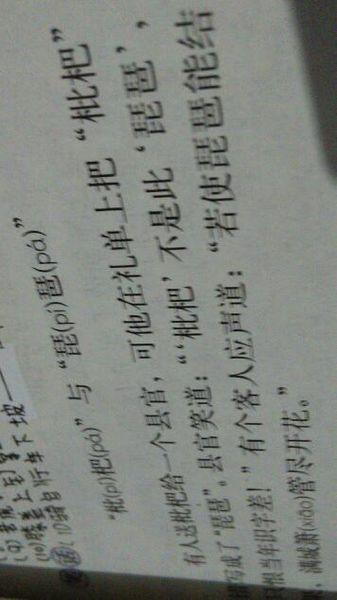 骑自行车下坡——
“枇(pí)杷(pá)” 与 “琵(pí)琶(pá)”
有人送枇杷给一个县官，可他在礼单上把“枇杷”
写成了“琵琶”。县官笑道：“‘枇杷’不是此‘琵琶’，
恨当年识字差！”有个客人应声道：“若使琵琶能结
，满城萧(xiāo)管尽开花。”